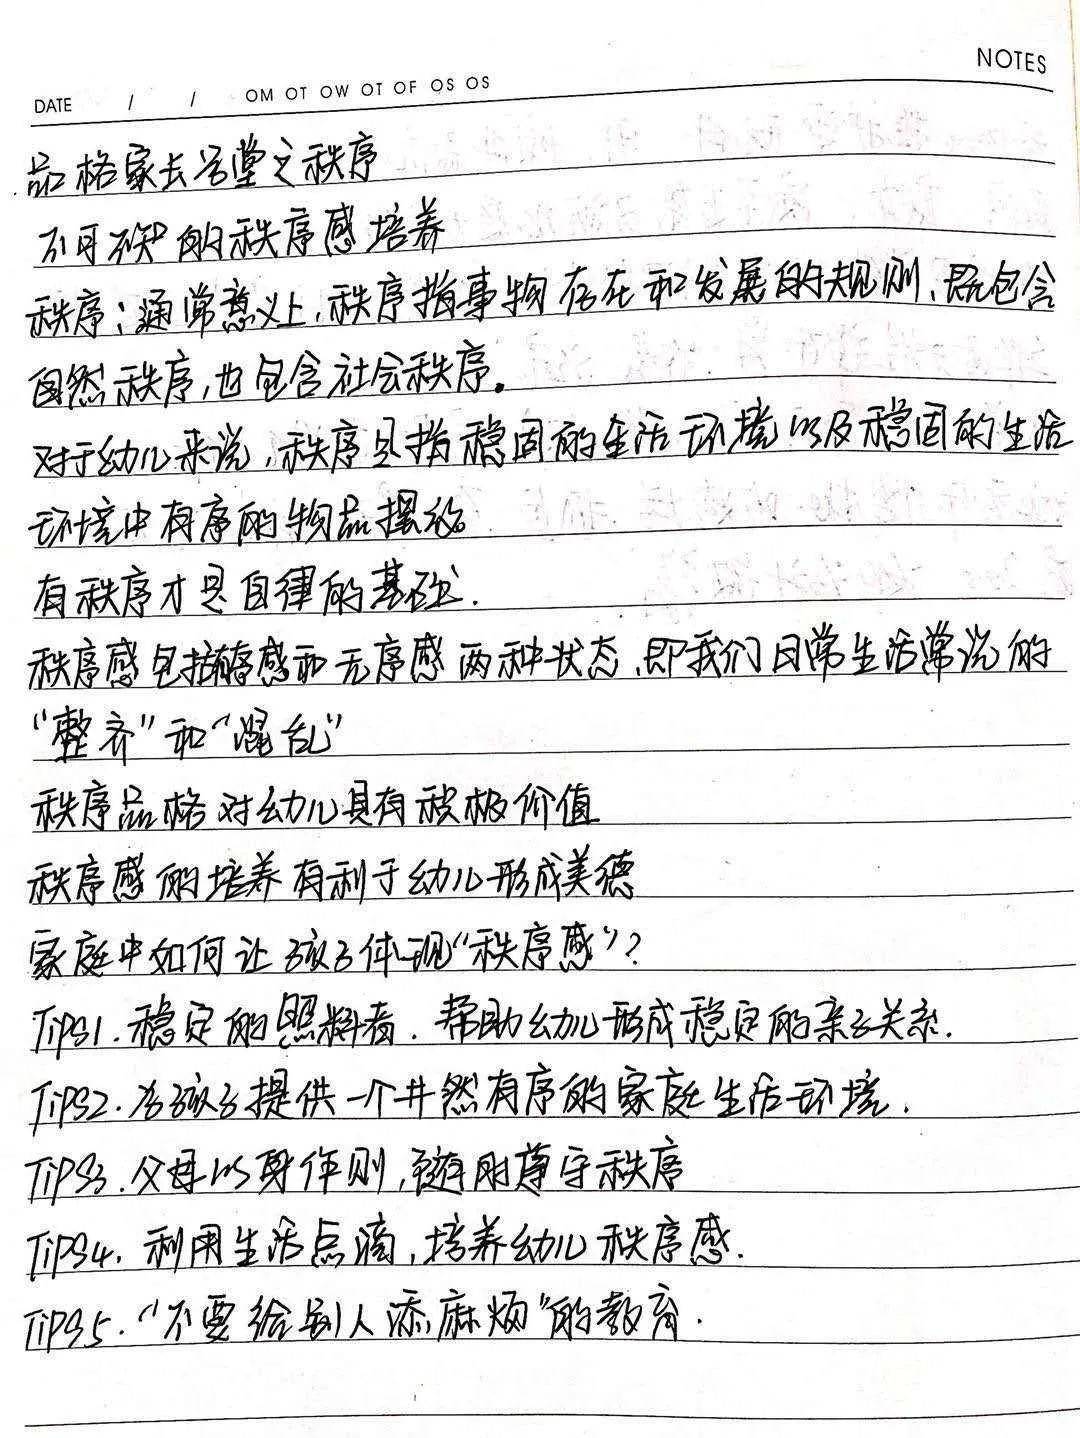 NOTES
DATE / / OM OT OW OT OF OS OS
品格家长学堂之秩序
不可或缺的秩序感培养
秩序:通常意义上,秩序指事物存在和发展的规则,既包含
自然秩序,也包含社会秩序。
对于幼儿来说,秩序是指稳固的生活环境以及稳固的生活
环境中有序的物品摆放。
有秩序才是自律的基础.
秩序感包括有序感和无序感两种状态,即我们日常生活常说的
“整齐”和“混乱”
秩序品格对幼儿具有积极价值
秩序感的培养有利于幼儿形成美德
家庭中如何让孩子体现“秩序感”?
TiPS1.稳定的照料者.帮助幼儿形成稳定的亲子关系.
TiPS2.为孩子提供一个井然有序的家庭生活环境.
TiPS3.父母以身作则,随时遵守秩序
TiPS4.利用生活点滴,培养幼儿秩序感.
TiPS5.“不要给别人添麻烦”的教育.